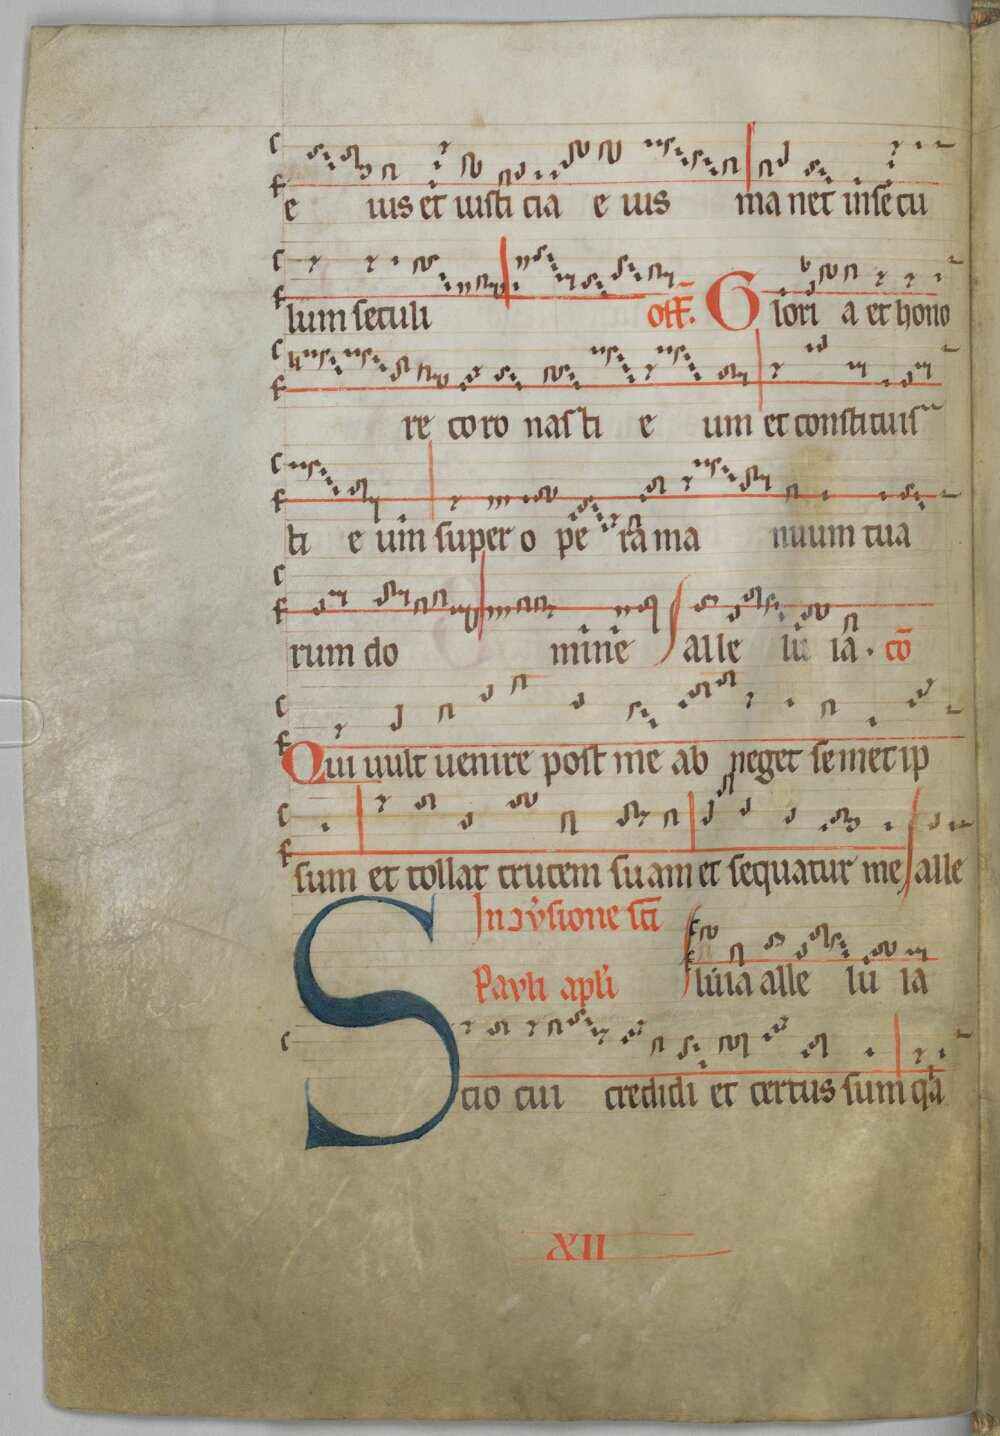 e uis et iusti cia e ius ma net in se cu
lum seculi off. Glori a et hono
re coro nas ti e um et constituis
ti e um super o pe ra ma nuum tua
rum do mine alle lu ia. co
Qui uult uenire post me ab neget semet ip
sum et tollat crucem suam et sequatur me alle
In sione sci
luia alle lu ia
Pauli apli
Scio cui credidi et certus sum qa
XII